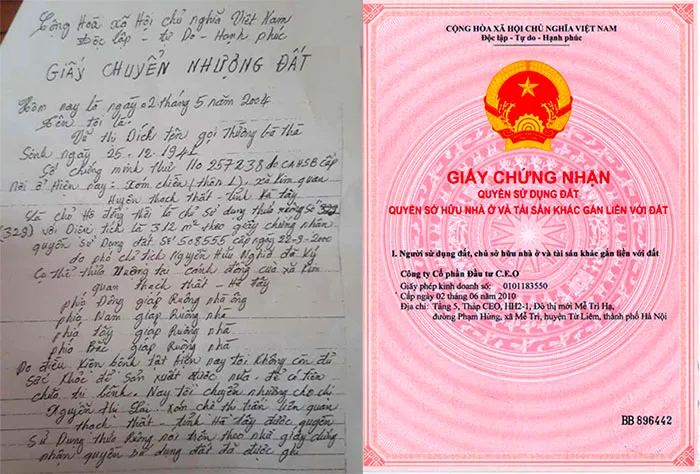 Cộng Hoà xã Hội chủ nghĩa Việt Nam
Độc lập - tự Do - Hạnh phúc
GIẤY CHUYỂN NHƯỢNG ĐẤT
Hôm nay là ngày 02 tháng 5 năm 2004
Tên tôi là:
Vũ thị Dích tên gọi thường bà thà
Sinh ngày 25.12.194
Số chứng minh thư 110 257 238 do CAHSB cấp
nơi ở Hiện nay: xóm chiến (thôn 2), xã kim quan
Huyện thạch thất - tỉnh Hà tây
Là chủ Hộ đồng thời là chủ sử dụng thửa ruộng số
(329) với Diện tích là 312 m² theo giấy chứng nhân
quyền sử Dụng đất số 508555 cấp ngày 22-9-2000
do phó chủ tịch Nguyễn Hữu Nghĩa đã ký
Cụ thể thửa Ruộng tại cánh đồng của xã kim
quan thạch thất - Hà tây
phía Đông giáp Ruộng nhà ông
phía Nam giáp Ruộng nhà
phía tây giáp Ruộng nhà
phía Bắc giáp Ruộng nhà
Do điều kiện bệnh tật hiện nay tôi không còn đủ
sức khỏe để sản xuất được nữa. để có tiền
chữa trị bệnh. Nay tôi chuyển nhượng cho chị
Nguyễn thị xóm chế thị trấn liên quan
thạch thất - tỉnh Hà tây được quyền
sử Dụng thửa Ruộng nói trên theo như giấy chứng
nhận quyền sử dụng đất đã được ghi
CỘNG HÒA XÃ HỘI CHỦ NGHĨA VIỆT NAM
Độc lập - Tự do - Hạnh phúc
GIẤY CHỨNG NHẬN
QUYỀN SỬ DỤNG ĐẤT
QUYỀN SỞ HỮU NHÀ Ở VÀ TÀI SẢN KHÁC GẮN LIỀN VỚI ĐẤT
I. Người sử dụng đất, chủ sở hữu nhà ở và tài sản khác gắn liền với đất
Công ty Cổ phần Đầu tư C.E.O
Giấy phép kinh doanh số: 0101183550
Cấp ngày 02 tháng 06 năm 2010
Địa chỉ: Tầng 5, Tháp CEO, HH2-1, Đô thị mới Mễ Trì Hạ,
đường Phạm Hùng, xã Mễ Trì, huyện Từ Liêm, thành phố Hà Nội
BB 896442